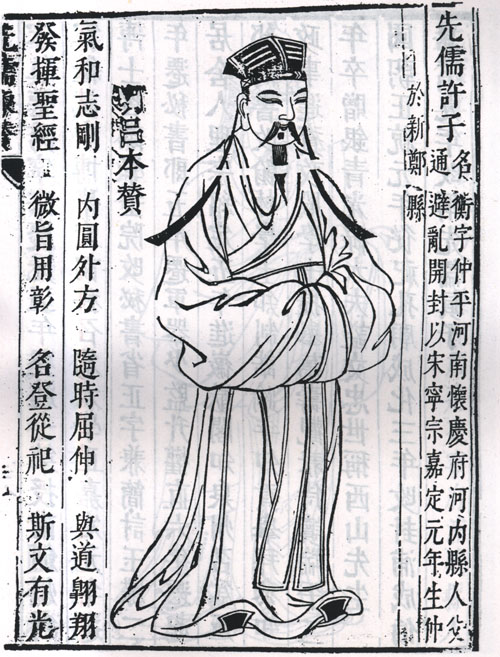 先儒許子
名衡字仲平河南懷慶府河內縣人父
通避亂開封以宋寧宗嘉定元年生仲
於新鄭縣
呂本贊
氣和志剛 內圓外方 隨時屈伸 與道翺翔
發揮聖經 微旨用彰 名登從祀 斯文有光